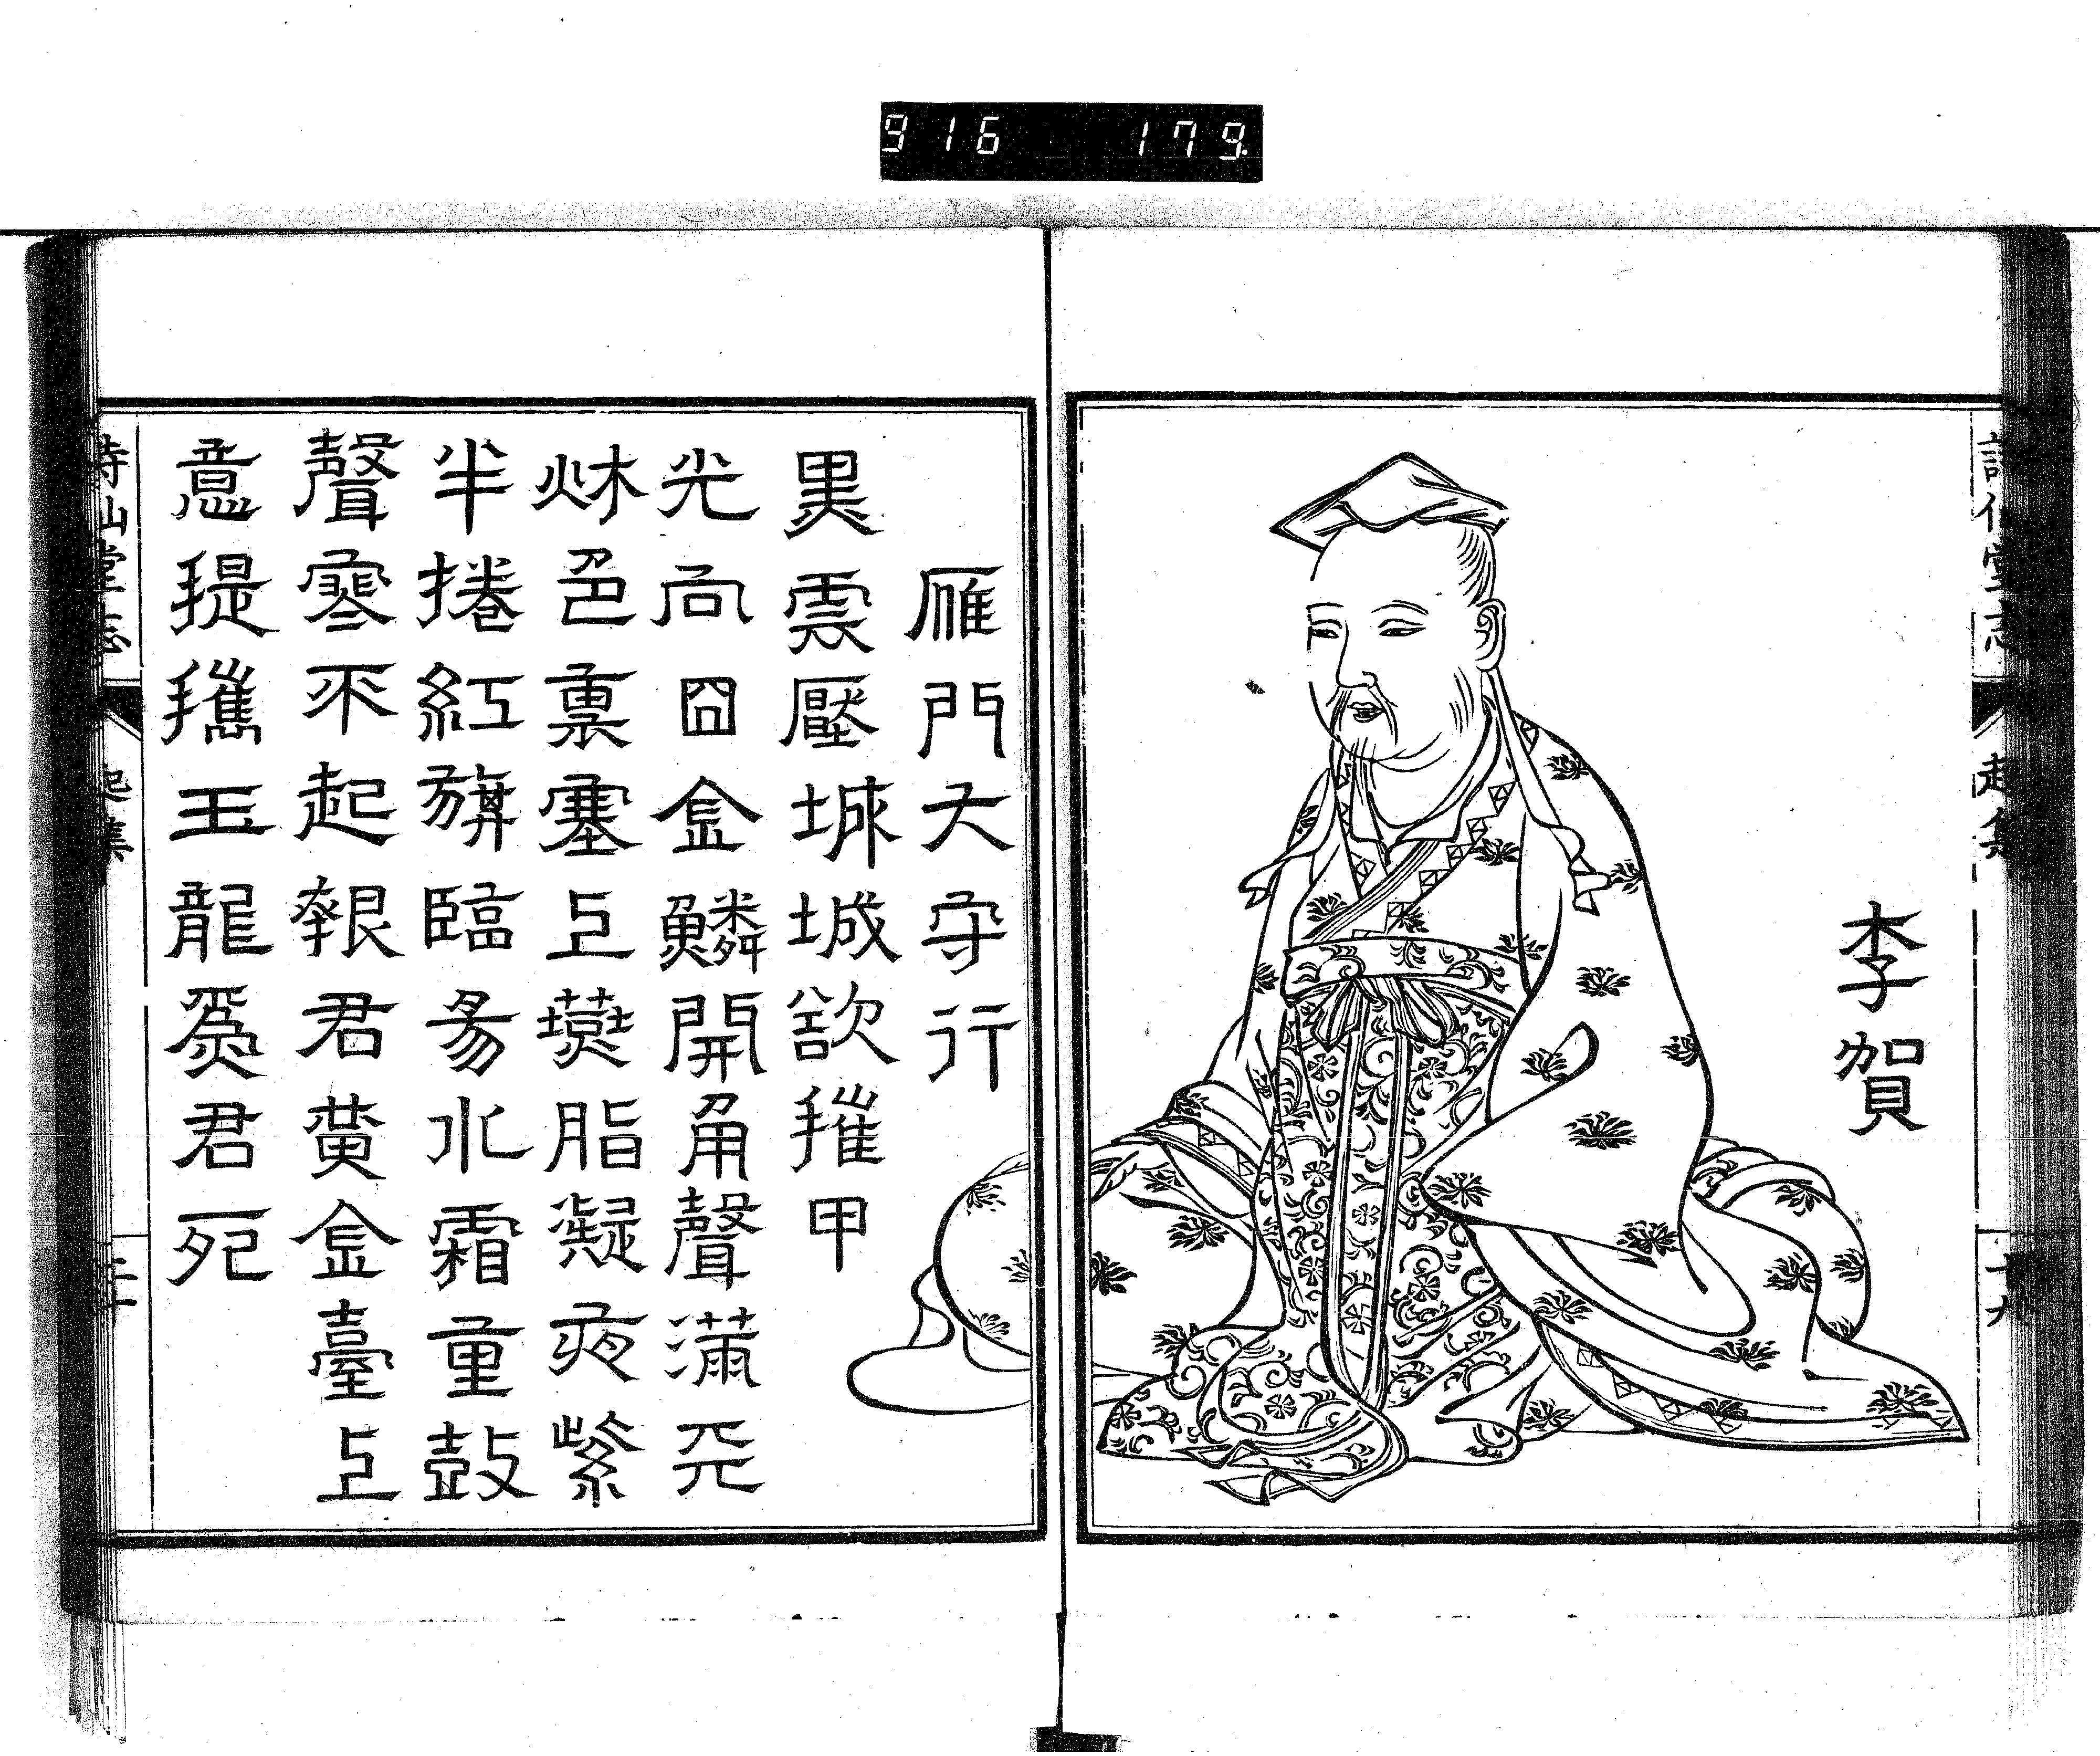 916 179
李賀
雁門大守行
黒雲壓城城欲摧甲
光向囧金鱗開角聲滿天
秌色裏塞上燕脂凝夜紫
半捲紅旗臨易水霜重鼓
聲寒不起報君黃金臺上
意提攜玉龍爲君死
詩仙堂志